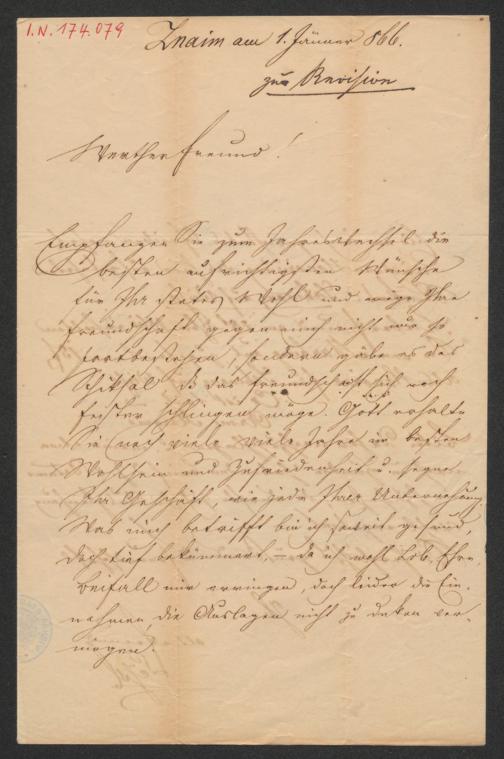 I.N. 174.079
Znaim am 1. Jänner 866.
zur Revision
Werther Freund!
Empfangen Sie zum Jahreswechsel die
besten aufrichtigsten Wünsche
für Ihr stetes Wohl und möge Ihre
Freundschaft gegen mich nicht nur so
fortbestehen, sondern gäbe es das
Schiksal daß das Freundschaft sich noch
fester schlingen möge. Gott erhalte
Sie noch viele viele Jahre im besten
Wohlsein und Zufriedenheit u. segne
Ihr Geschäft, wie jede Ihrer Unternehmung.
Was mich betrifft bin ich soweit gesund,
doch tief bekümmert, – da ich wohl Lob, Ehre,
Beifall mir erringen, doch leider die Ein-
nahmen die Auslagen nicht zu deken ver-
mögen.